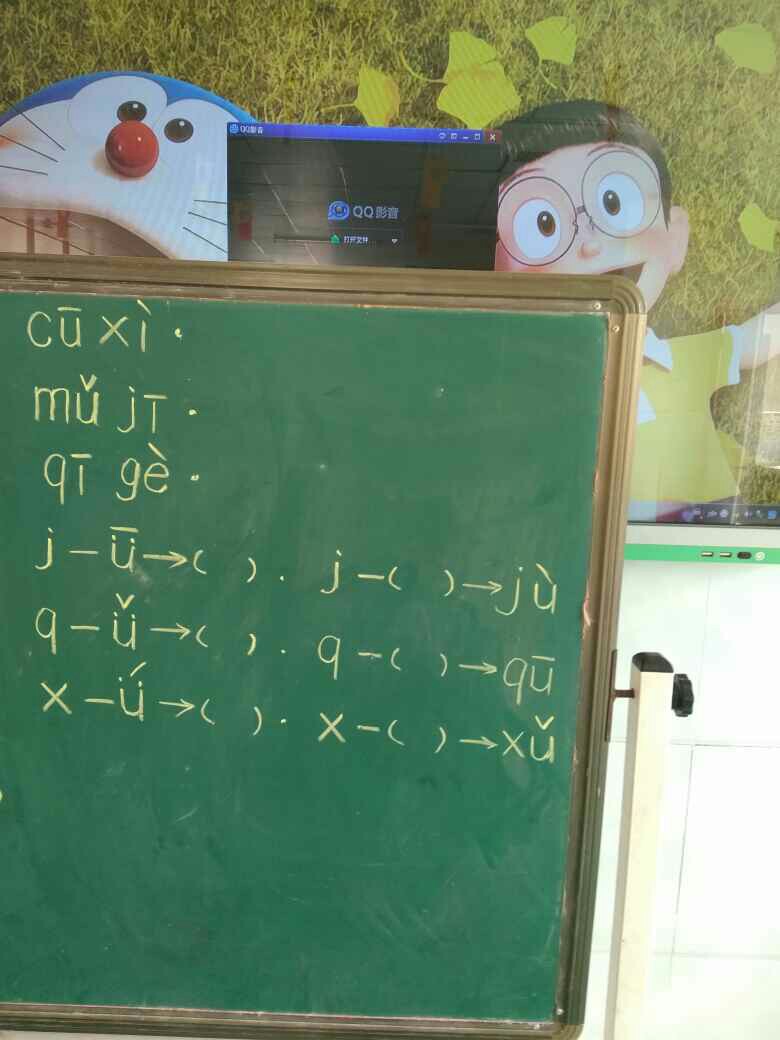 QQ影音
QQ影音
打开文件
cū xì.
mǔ jī.
qī gè.
j－ǖ→( ). j－( )→jù
q－ǚ→( ). q－( )→qū
x－ǘ→( ). x－( )→xǔ